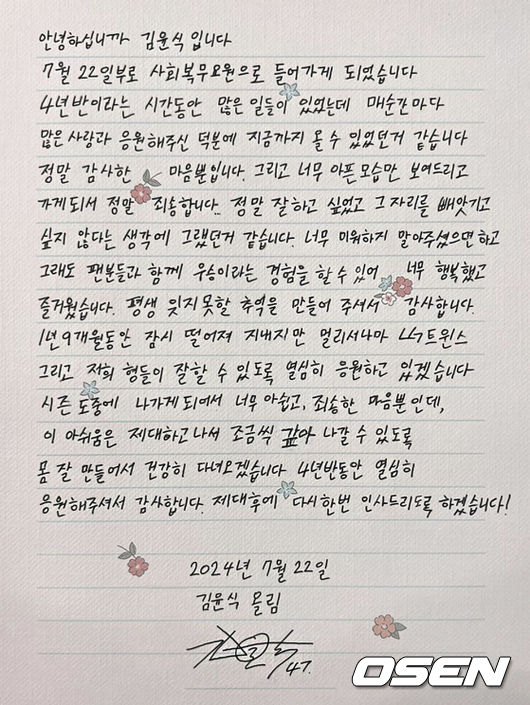 안녕하십니까 김윤식 입니다
7월 22일부로 사회복무요원으로 들어가게 되었습니다
4년반이라는 시간동안 많은 일들이 있었는데 매순간마다
많은 사랑과 응원해주신 덕분에 지금까지 올 수 있었던거 같습니다
정말 감사한 마음뿐입니다. 그리고 너무 아픈모습만 보여드리고
가게되서 정말 죄송합니다.. 정말 잘하고 싶었고 그 자리를 빼앗기고
싶지 않다는 생각에 그랬던거 같습니다. 너무 미워하지 말아주셨으면 하고
그래도 팬분들과 함께 우승이라는 경험을 할 수 있어 너무 행복했고
즐거웠습니다. 평생 잊지못할 추억을 만들어 주셔서 감사합니다.
1년 9개월동안 잠시 떨어져 지내지만 멀리서나마 LG트윈스
그리고 저희 형들이 잘할 수 있도록 열심히 응원하고 있겠습니다
시즌 도중에 나가게되어서 너무 아쉽고, 죄송한 마음뿐인데,
이 아쉬움은 제대하고나서 조금씩 갚아 나갈 수 있도록
몸 잘 만들어서 건강히 다녀오겠습니다 4년반동안 열심히
응원해주셔서 감사합니다. 제대후에 다시한번 인사드리도록 하겠습니다!
2024년 7월 22일
김윤식 올림
47.
OSEN